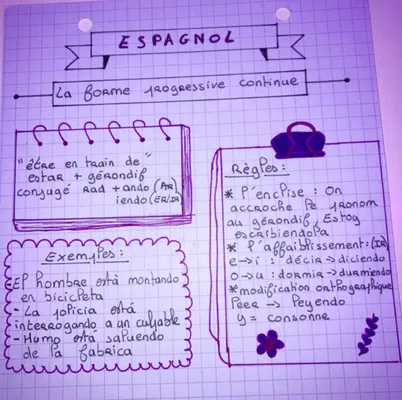 ESPAGNOL
La forme progressive continue
"être en train de"
estar + gérondif
conjugé Rad + ando (AR)
iendo (ER/IR)
Exemples :
- El hombre está montando
en bicicleta
- La policía está
interrogando a un culpable
- Humo está saliendo
de la fabrica
Règles :
* l'enclise : On
accroche le pronom
au gérondif. Estoy
escribiendola
* l'affaiblissement : (IR)
e → i : décia → diciendo
o → u : dormia → durmiendo
* modification orthographique
leer → leyendo
y = consonne